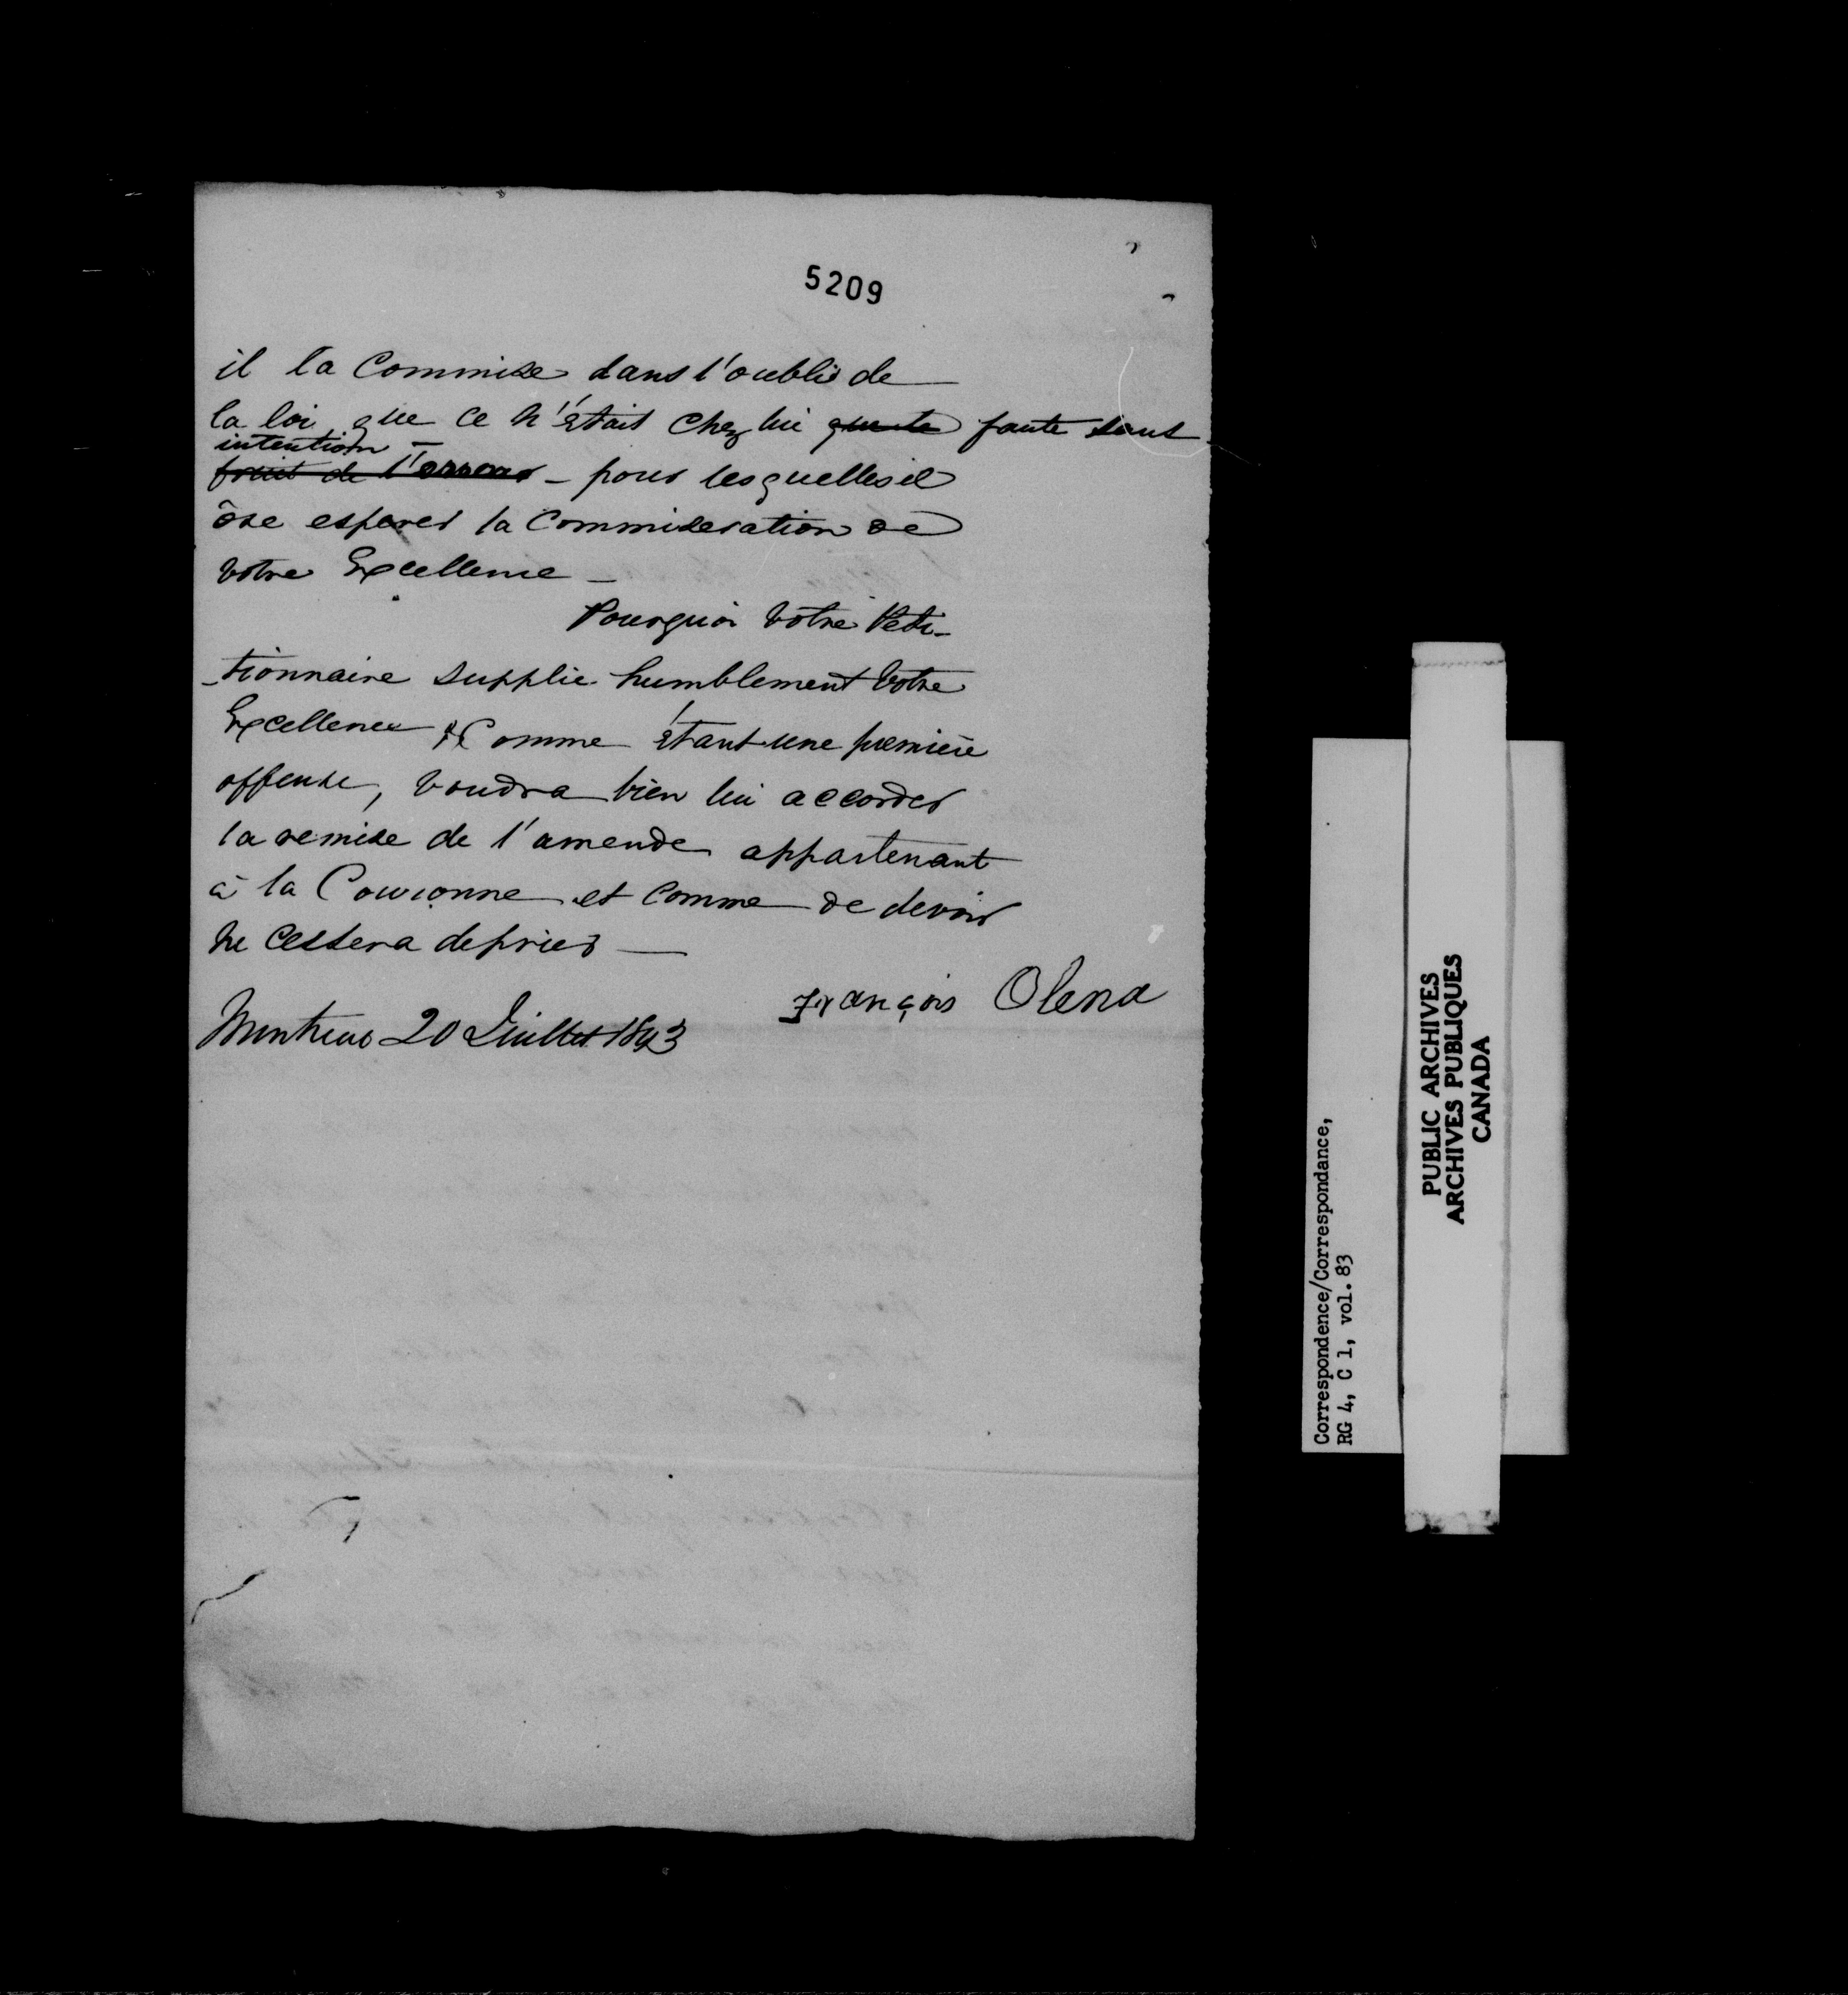 5209
il la Commise dans l'oubli de
la loi, que ce n'était chez lui faute sans
intention
fruit de l'erreur - pour lesquelles il
ôse esperer la Commiseration de
Votre Excellence -
Pourquoi Votre Peti-
-tionnaire supplie humblement Votre
Excellence Comme étant une première
offense, voudra bien lui accorder
la remise de l'amende appartenant
à la Couronne et comme de devoir
ne cessera de prier —
François Olena
Montreal 20 Juillet 1843
Correspondence/Correspondance,
RG 4, C 1, vol. 83
PUBLIC ARCHIVES
ARCHIVES PUBLIQUES
CANADA